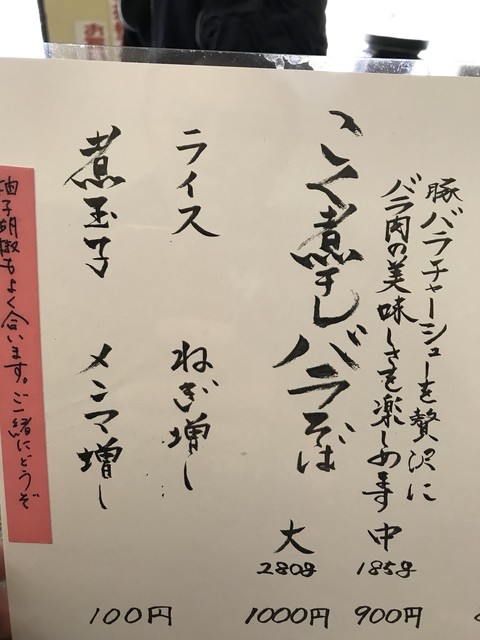 豚バラチャーシューを贅沢に
バラ肉の美味しさを楽しめます
こく煮干しバラそば
中
185g
900円
大
280g
1000円
ライス
ねぎ増し
煮玉子
メンマ増し
100円
柚子胡椒もよく合います。ご一緒にどうぞ